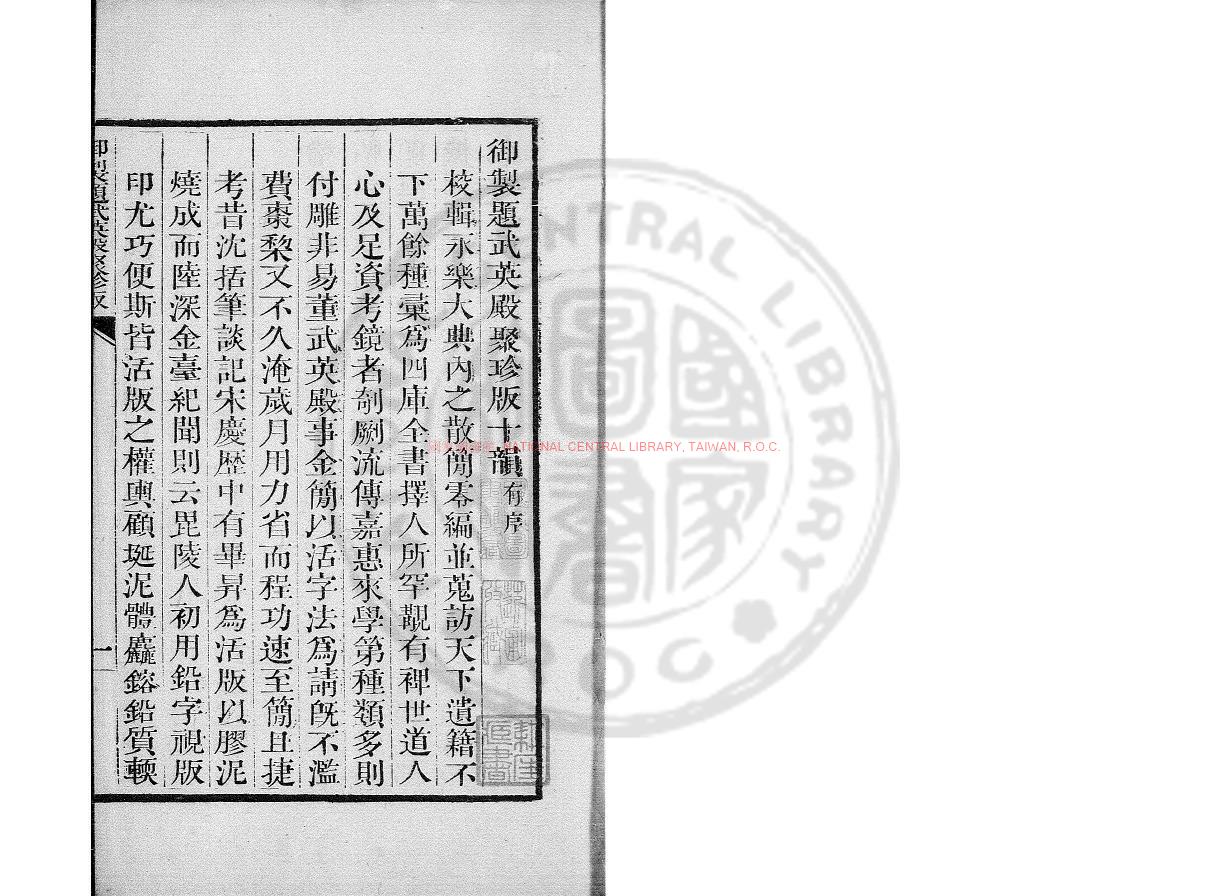 御製題武英殿聚珍版十韻有序
校輯永樂大典內之散簡零編並蒐訪天下遺籍不
下萬餘種彙爲四庫全書擇人所罕覯有裨世道人
心及足資考鏡者剞劂流傳嘉惠來學第種類多則
付雕非易董武英殿事金簡以活字法爲請旣不濫
費棗棃又不久淹歲月用力省而程功速至簡且捷
考昔沈括筆談記宋慶歷中有畢昇爲活版以膠泥
燒成而陸深金臺紀聞則云毘陵人初用鉛字視版
印尤巧便斯皆活版之權輿顧埏泥體麤鎔鉛質輭
御製題武英殿聚珍版
一
NATIONAL CENTRAL LIBRARY, TAIWAN, R.O.C.
CENTRAL LIBRARY
ROC
國家圖書